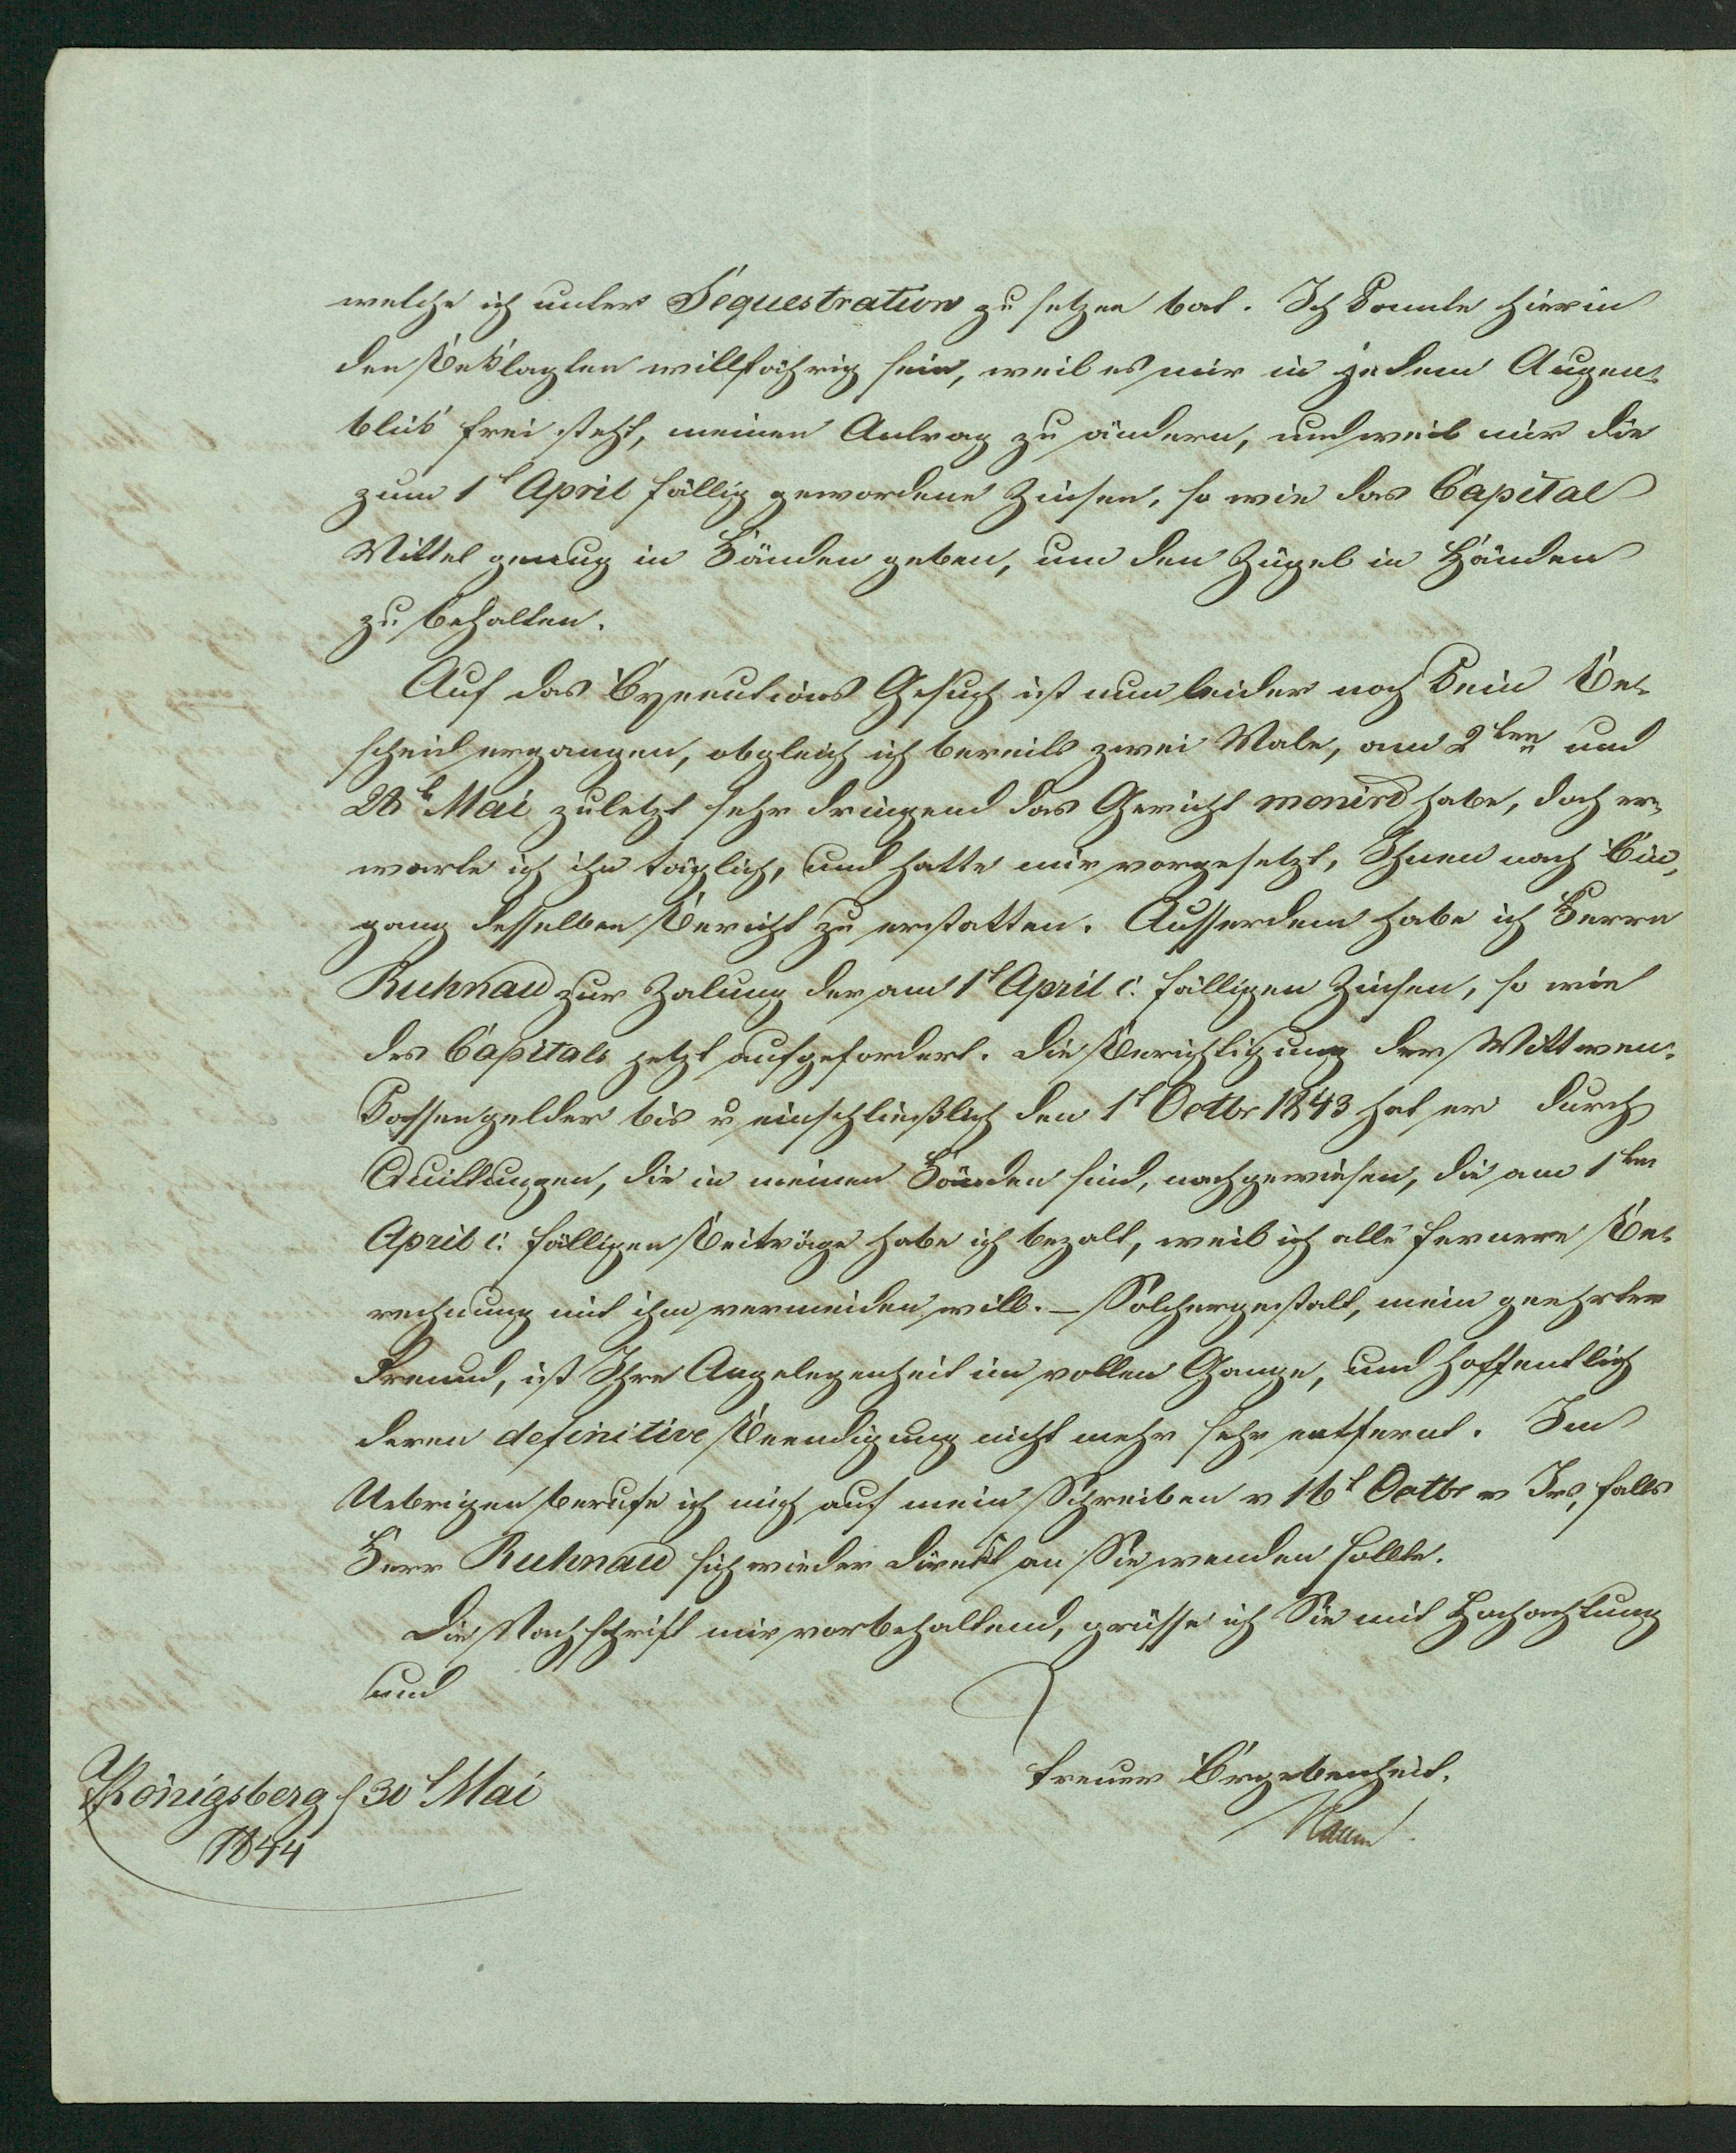 welche ich unter Sequestration zu setzen bat. Ich konnte hierin
den Beklagten willfährig sein, weil es mir in jedem Augen-
blick frei steht, meinen Antrag zu ändern, und weil mir die
zum 1t April fällig gewordene Zinsen, so wie das Capital
Mittel genug in Händen geben, um den Zügel in Händen
zu behalten.
Auf das Executions Gesuch ist nun leider noch kein Be-
scheid ergangen, obgleich ich bereits zwei Male, am 2ten und
28t Mai zuletzt sehr dringend das Gericht monird habe, doch er-
warte ich ihn täglich, und hatte mir vorgesetzt, Ihnen nach Ein-
gang desselben Bericht zu erstatten. Ausserdem habe ich Herrn
Kuhnau zur Zalung der am 1t April c: fälligen Zinsen, so wie
des Capitals jetzt aufgefordert. Die Berichtigung der Wittwen-
Kassengelder bis u einschließlich den 1t Octbr 1843 hat er durch
Quittungen, die in meinen Händen sind, nachgewiesen, die am 1ten
April c: fälligen Beiträge habe ich bezalt, weil ich alle fernere Be-
rechnung mit ihm vermeiden will. – Solchergestalt, mein geehrter
Freund, ist Ihre Angelegenheit im vollen Gange, und hoffentlich
deren definitive Beendigung nicht mehr sehr entfernt. Im
Uebrigen berufe ich mich auf mein Schreiben v 16t Octbr v Jrs, falls
Herr Kuhnau sich wieder direkt an Sie wenden sollte.
Die Nachschrift mir vorbehaltend, grüsse ich Sie mit Hochachtung
und
treuer Ergebenheit.
Königsberg d 30t Mai
1844